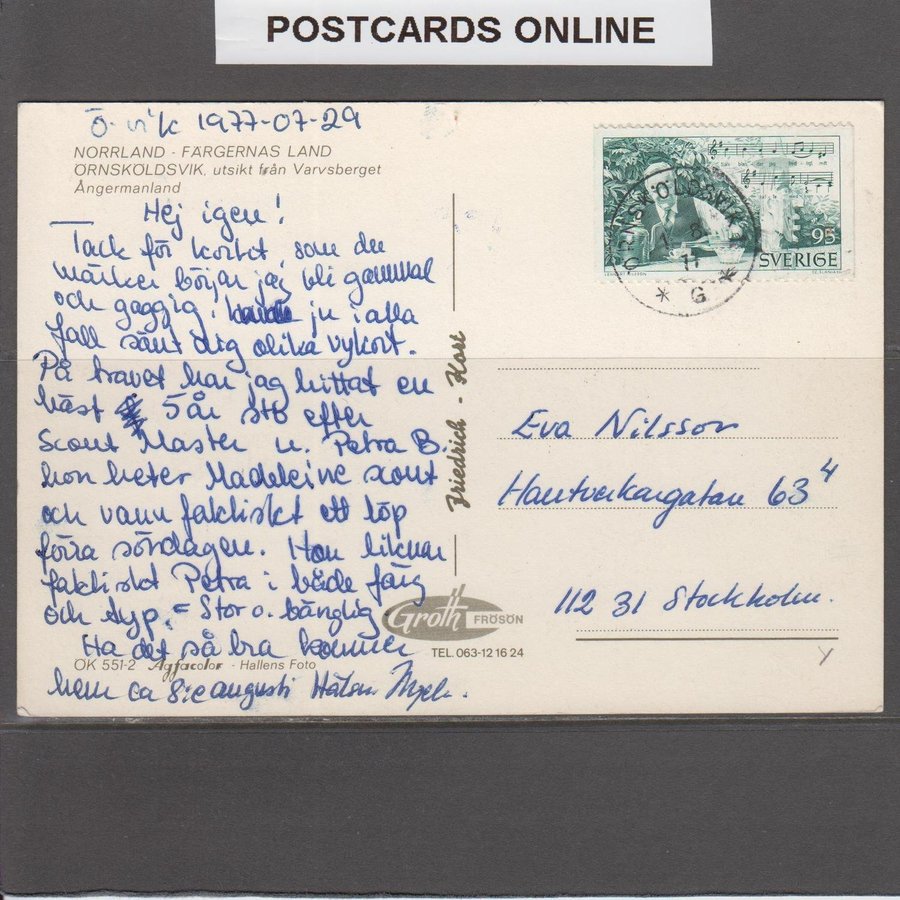 POSTCARDS ONLINE
Ö-vik 1977-07-29
NORRLAND - FÄRGERNAS LAND
ÖRNSKÖLDSVIK, utsikt från Varvsberget
Ångermanland
Hej igen!
Tack för kortet, som du
märker börjar jag bli gammal
och gaggig. ju i alla
fall sänt dig olika vykort.
På travet har jag hittat en
häst 5 år sto efter
Scout Master u. Petra B.
hon heter Madeleine scout
och vann faktiskt ett löp
förra söndagen. Hon liknar
faktiskt Petra i både färg
och typ. = Stor o. bänglig
Ha det så bra kommer
hem ca 8:e augusti
ÖK 551-2 Agfacolor - Hallens Foto
Friedrich - Kort
Groth FRÖSÖN
TEL. 063-12 16 24
ÖRNSKÖLDSVIK
1 8
77
* G *
95
SVERIGE
Eva Nilsson
Hantverkargatan 63 4
112 31 Stockholm.